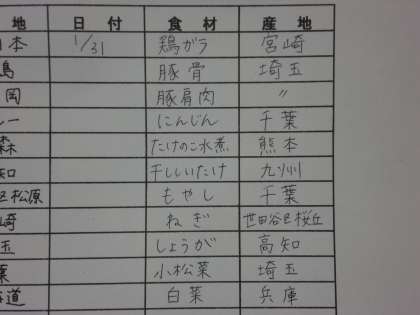 地 日付 食材 産地
本 1/31 鶏ガラ 宮崎
島 豚骨 埼玉
岡 豚肩肉 〃
ー にんじん 千葉
森 たけのこ水煮 熊本
知 干ししいたけ 九州
区松原 もやし 千葉
崎 ねぎ 世田谷区桜丘
玉 しょうが 高知
葉 小松菜 埼玉
海道 白菜 兵庫